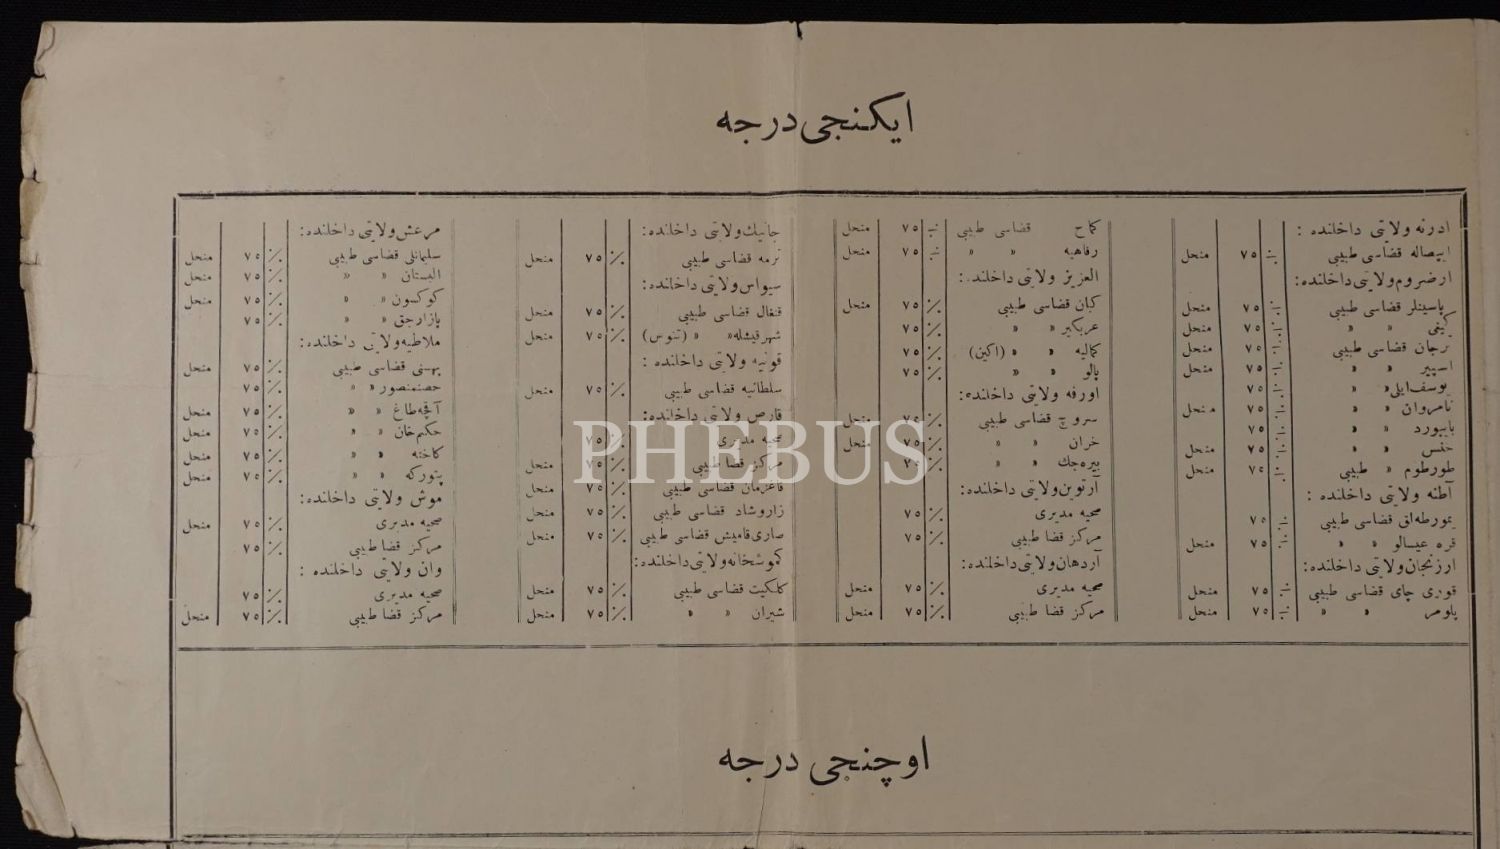 ايكنجی درجه
ادرنه ولايتی داخلنده :
ايپصاله قضاسی طبيبی ٪ ٧٥ منحل
ارضروم ولايتی داخلنده :
پاسينلر قضاسی طبيبی ٪ ٧٥ منحل
كيغی » » ٪ ٧٥ منحل
ترجان قضاسی طبيبی ٪ ٧٥ منحل
اسپير » » ٪ ٧٥ منحل
يوسف ايلی » » ٪ ٧٥
نامروان » » ٪ ٧٥ منحل
بايبورد » » ٪ ٧٥
خنس » » ٪ ٧٥ منحل
طورطوم » طبيبی ٪ ٧٥ منحل
آطنه ولايتی داخلنده :
يمورطه‌لق قضاسی طبيبی ٪ ٧٥
قره عيسالو » » ٪ ٧٥ منحل
ارزنجان ولايتی داخلنده :
قوری چای قضاسی طبيبی ٪ ٧٥ منحل
پلومر » » ٪ ٧٥ منحل
كماح قضاسی طبيبی ٪ ٧٥ منحل
رفاهيه » » ٪ ٧٥ منحل
العزيز ولايتی داخلنده :
كبان قضاسی طبيبی ٪ ٧٥ منحل
عربكير » » ٪ ٧٥
كماليه » » (اكين) ٪ ٧٥
پالو » » ٪ ٧٥
اورفه ولايتی داخلنده :
سروج قضاسی طبيبی ٪ ٧٥ منحل
حران » » ٪ ٧٥ منحل
بيره‌جك » » ٪ ٧٥
آرتوين ولايتی داخلنده :
صحيه مديری ٪ ٧٥
مركز قضا طبيبی ٪ ٧٥
آردهان ولايتی داخلنده :
صحيه مديری ٪ ٧٥ منحل
مركز قضا طبيبی ٪ ٧٥ منحل
جانيك ولايتی داخلنده :
ترمه قضاسی طبيبی ٪ ٧٥ منحل
سيواس ولايتی داخلنده :
قنغال قضاسی طبيبی ٪ ٧٥ منحل
شهرقيشله » » (تنوس) ٪ ٧٥ منحل
قونيه ولايتی داخلنده :
سلطانيه قضاسی طبيبی ٪ ٧٥ منحل
قارص ولايتی داخلنده :
صحيه مديری ٪ ٧٥
مركز قضا طبيبی ٪ ٧٥ منحل
قاغزمان قضاسی طبيبی ٪ ٧٥ منحل
زاروشاد قضاسی طبيبی ٪ ٧٥ منحل
صاری قاميش قضاسی طبيبی ٪ ٧٥ منحل
كموشخانه ولايتی داخلنده :
كلكيت قضاسی طبيبی ٪ ٧٥ منحل
شيران » » ٪ ٧٥ منحل
مرعش ولايتی داخلنده :
سليمانلی قضاسی طبيبی ٪ ٧٥ منحل
البستان » » ٪ ٧٥ منحل
كوكسون » » ٪ ٧٥ منحل
پازارجق » » ٪ ٧٥
ملاطيه ولايتی داخلنده :
بهسنی قضاسی طبيبی ٪ ٧٥ منحل
حصنمنصور » » ٪ ٧٥
آقچه‌طاغ » » ٪ ٧٥ منحل
حكيم خان » » ٪ ٧٥ منحل
كاخته » » ٪ ٧٥ منحل
پتوركه » » ٪ ٧٥ منحل
موش ولايتی داخلنده :
صحيه مديری ٪ ٧٥ منحل
مركز قضا طبيبی ٪ ٧٥
وان ولايتی داخلنده :
صحيه مديری ٪ ٧٥
مركز قضا طبيبی ٪ ٧٥ منحل
PHEBUS
اوچنجی درجه